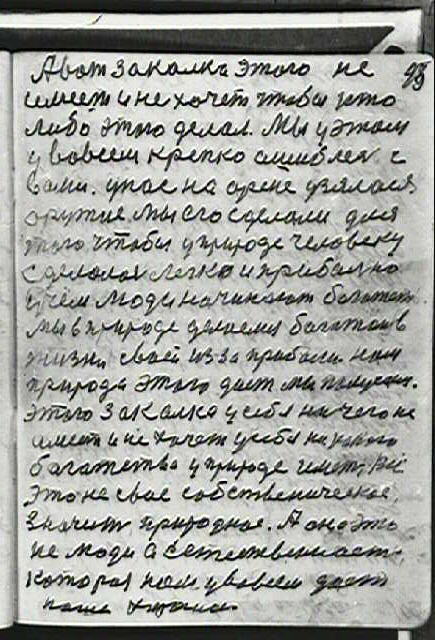 А вот закалка этого не 98
имеет и не хочет чтобы кто
либо этого делал. Мы у этом
у вовсем крепко ошиблися с
вами. у нас на арене узялося
оружие. мы его сделали для
того чтобы у природе человеку
сделалося легко и прибально
учем люди начинают богатет
мы в природе делаемся богатым в
жизни своей из за прибали. нам
природа этого дает мы получаем.
этого закалка у себя ничего не
имеет и не хочет у себя никакого
багатства у природе иметь, все
это не свое собственическое,
значит природное. А оно это
не люди а естественность
которая нам у вовсем дает
наше